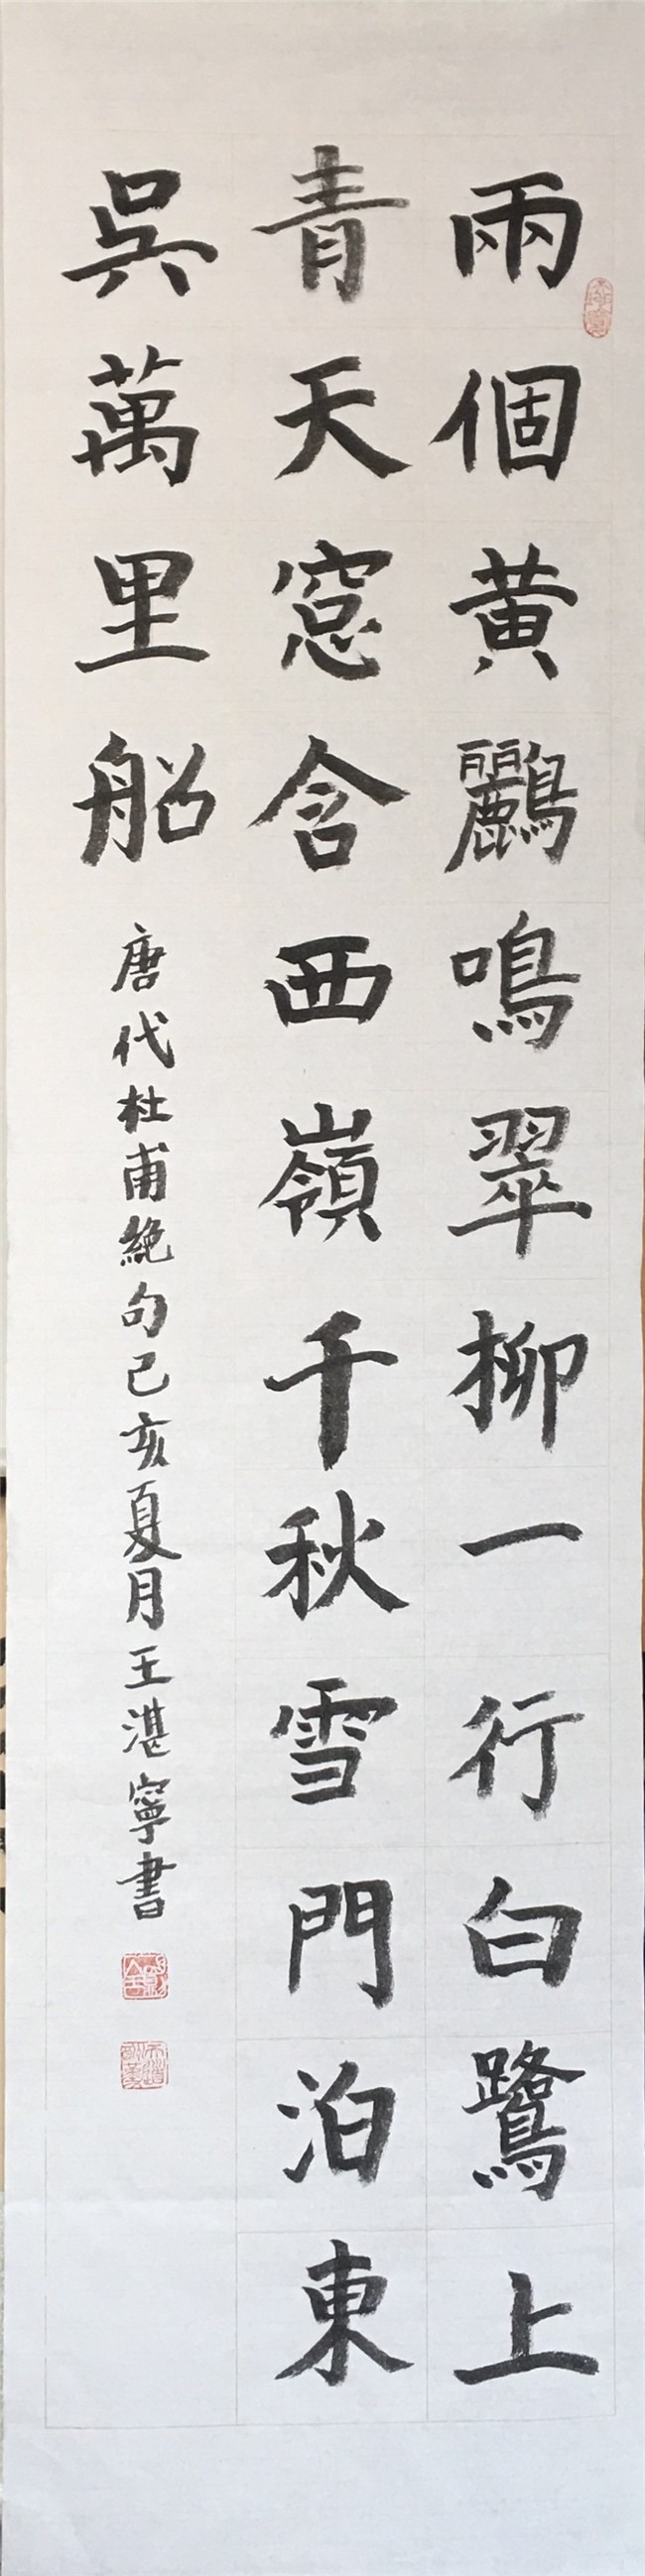 兩個黄鸝鳴翠柳一行白鷺上
青天窻含西嶺千秋雪門泊東
吳萬里船
唐代杜甫絶句己亥夏月王湛寧書